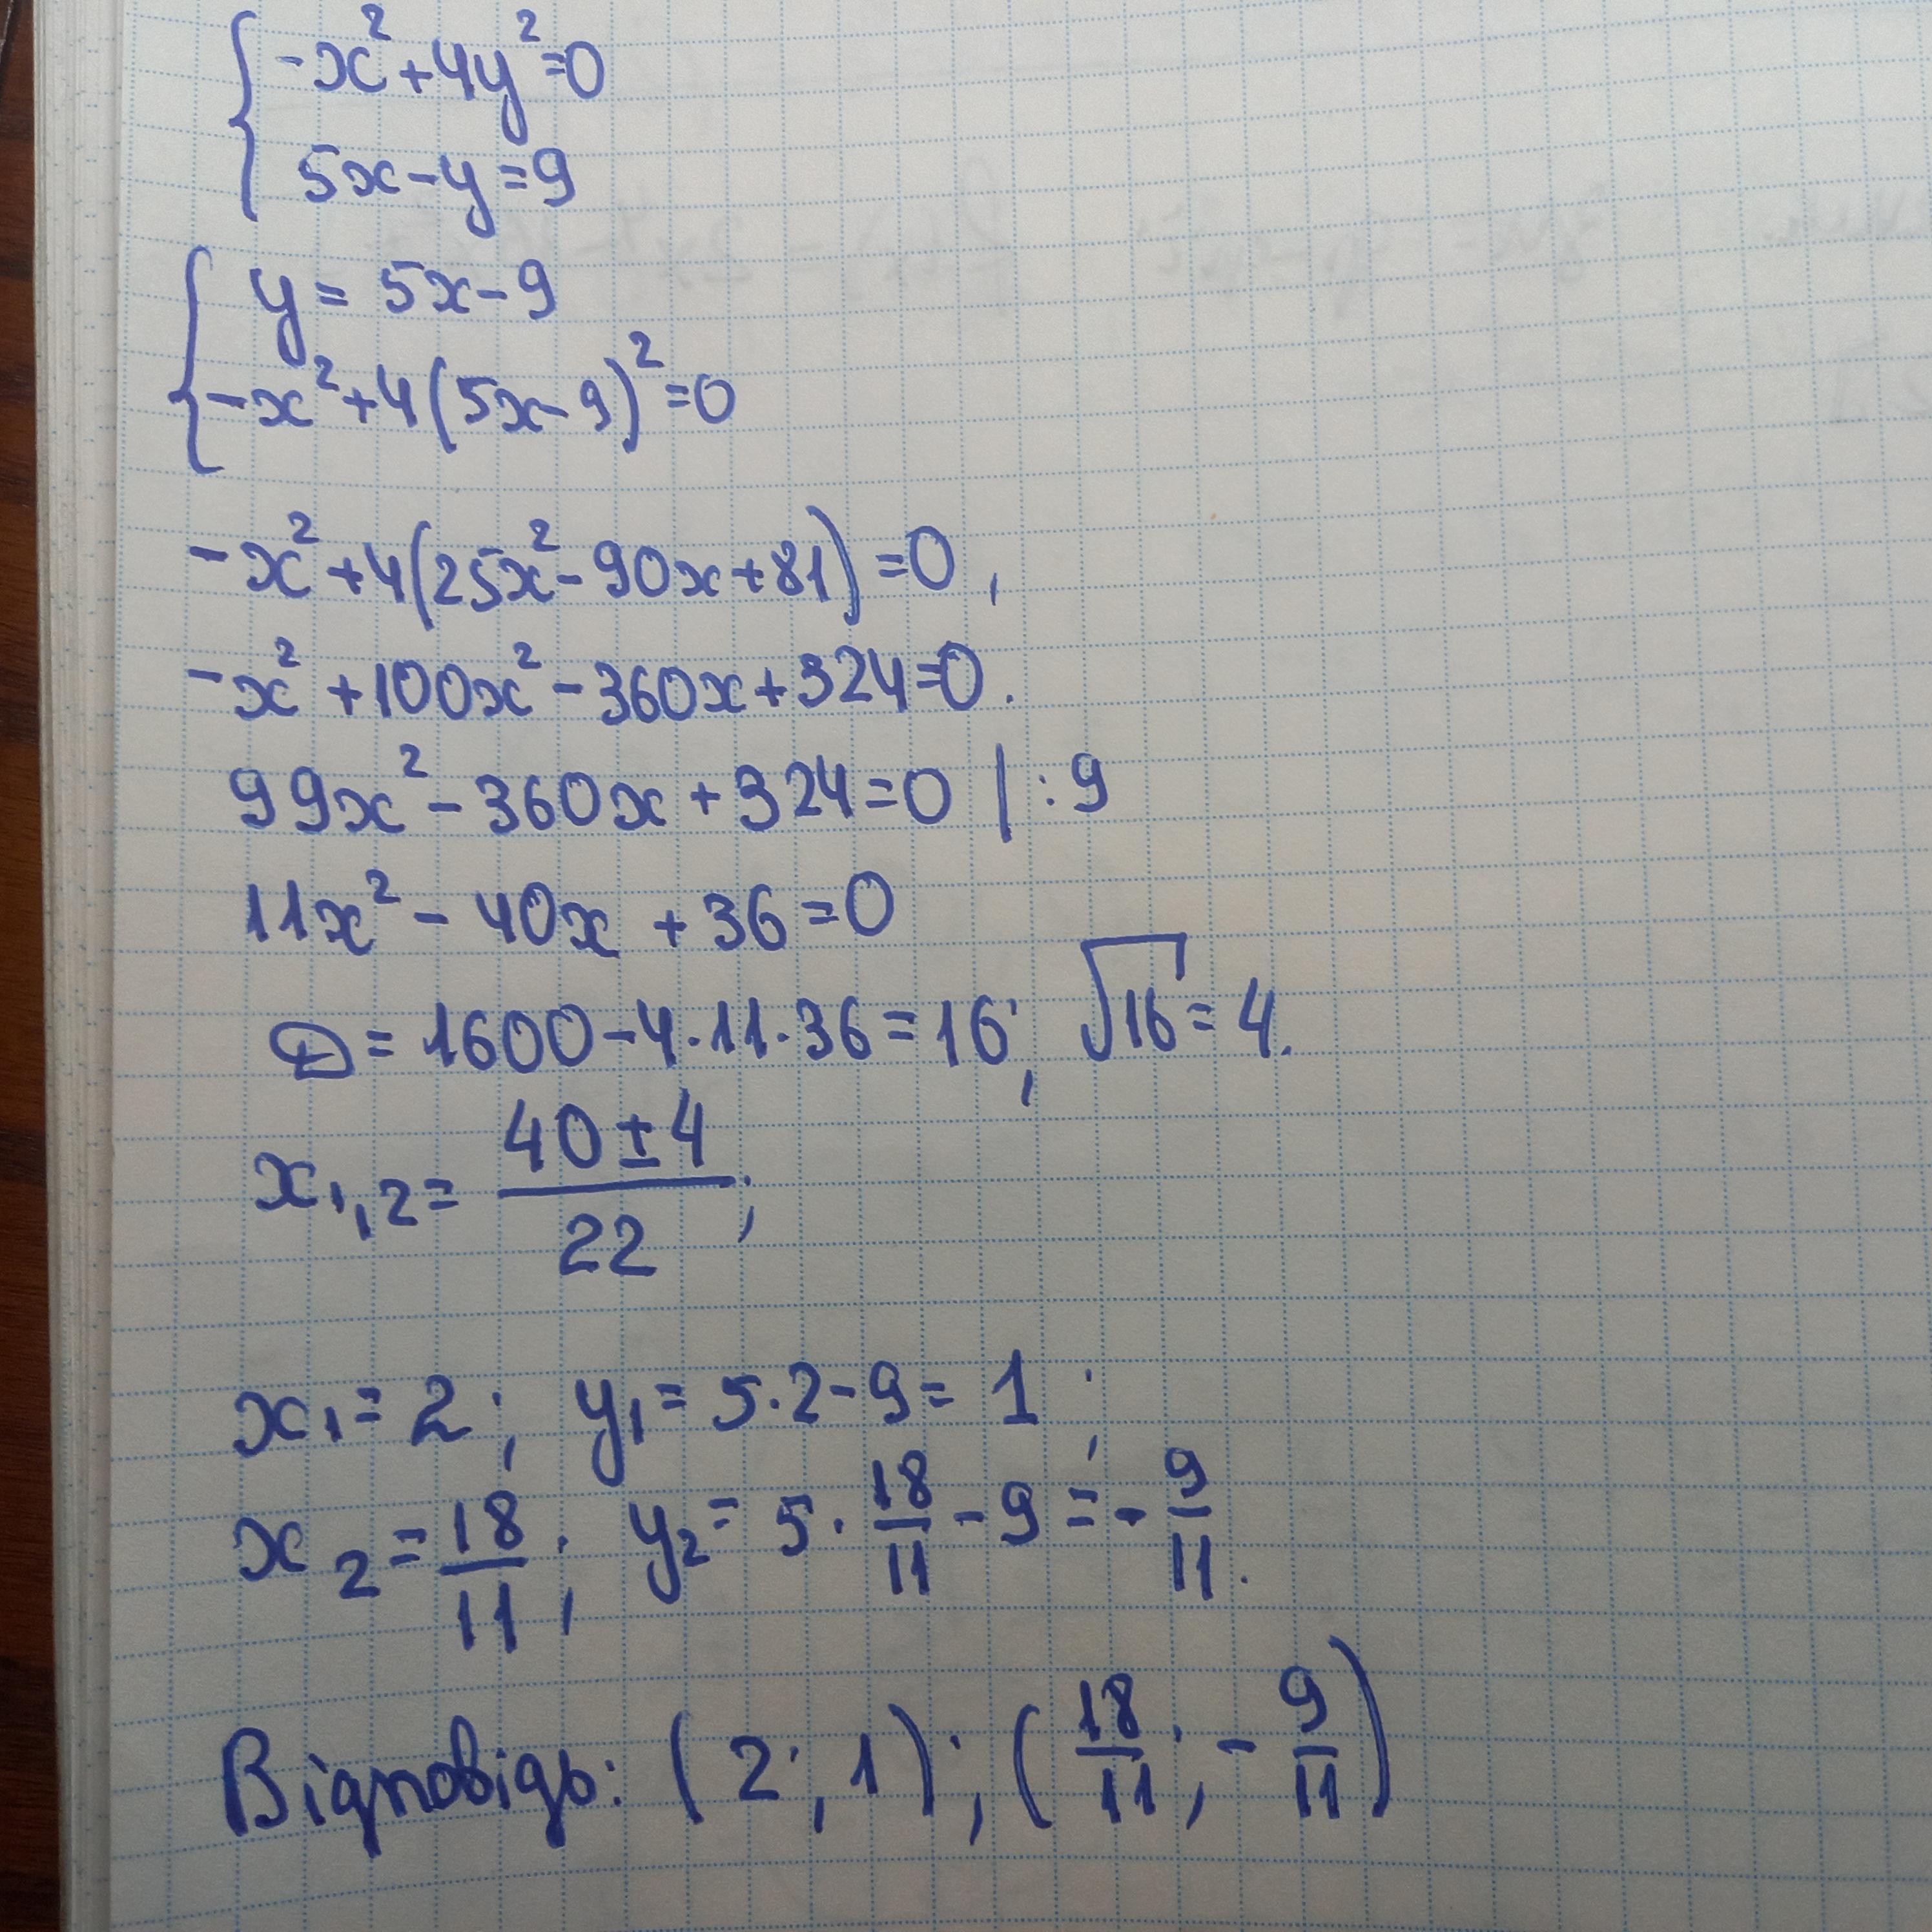 -x²+4y²=0
5x-y=9
y= 5x-9
-x²+4(5x-9)²=0
-x²+4(25x²-90x+81)=0,
-x²+100x²-360x+324=0.
99x²-360x+324=0 | :9
11x²-40x+36=0
D=1600-4·11·36=16; √16=4.
x₁,₂= (40±4)/22;
x₁=2; y₁=5·2-9=1;
x₂=18/11; y₂=5·18/11-9=-9/11.
Відповідь: (2;1); (18/11;-9/11)